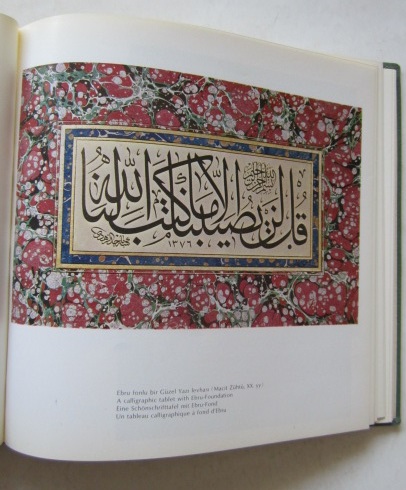 بسم الله الرحمن الرحيم
قل لن يصيبنا الا ما كتب الله لنا
١٣٧٦
Ebru fonlu bir Güzel Yazı levhası (Macit Zühtü, XX. yy)
A calligraphic tablet with Ebru-Foundation
Eine Schönschrifttafel mit Ebru-Fond
Un tableau calligraphique à fond d'Ebru